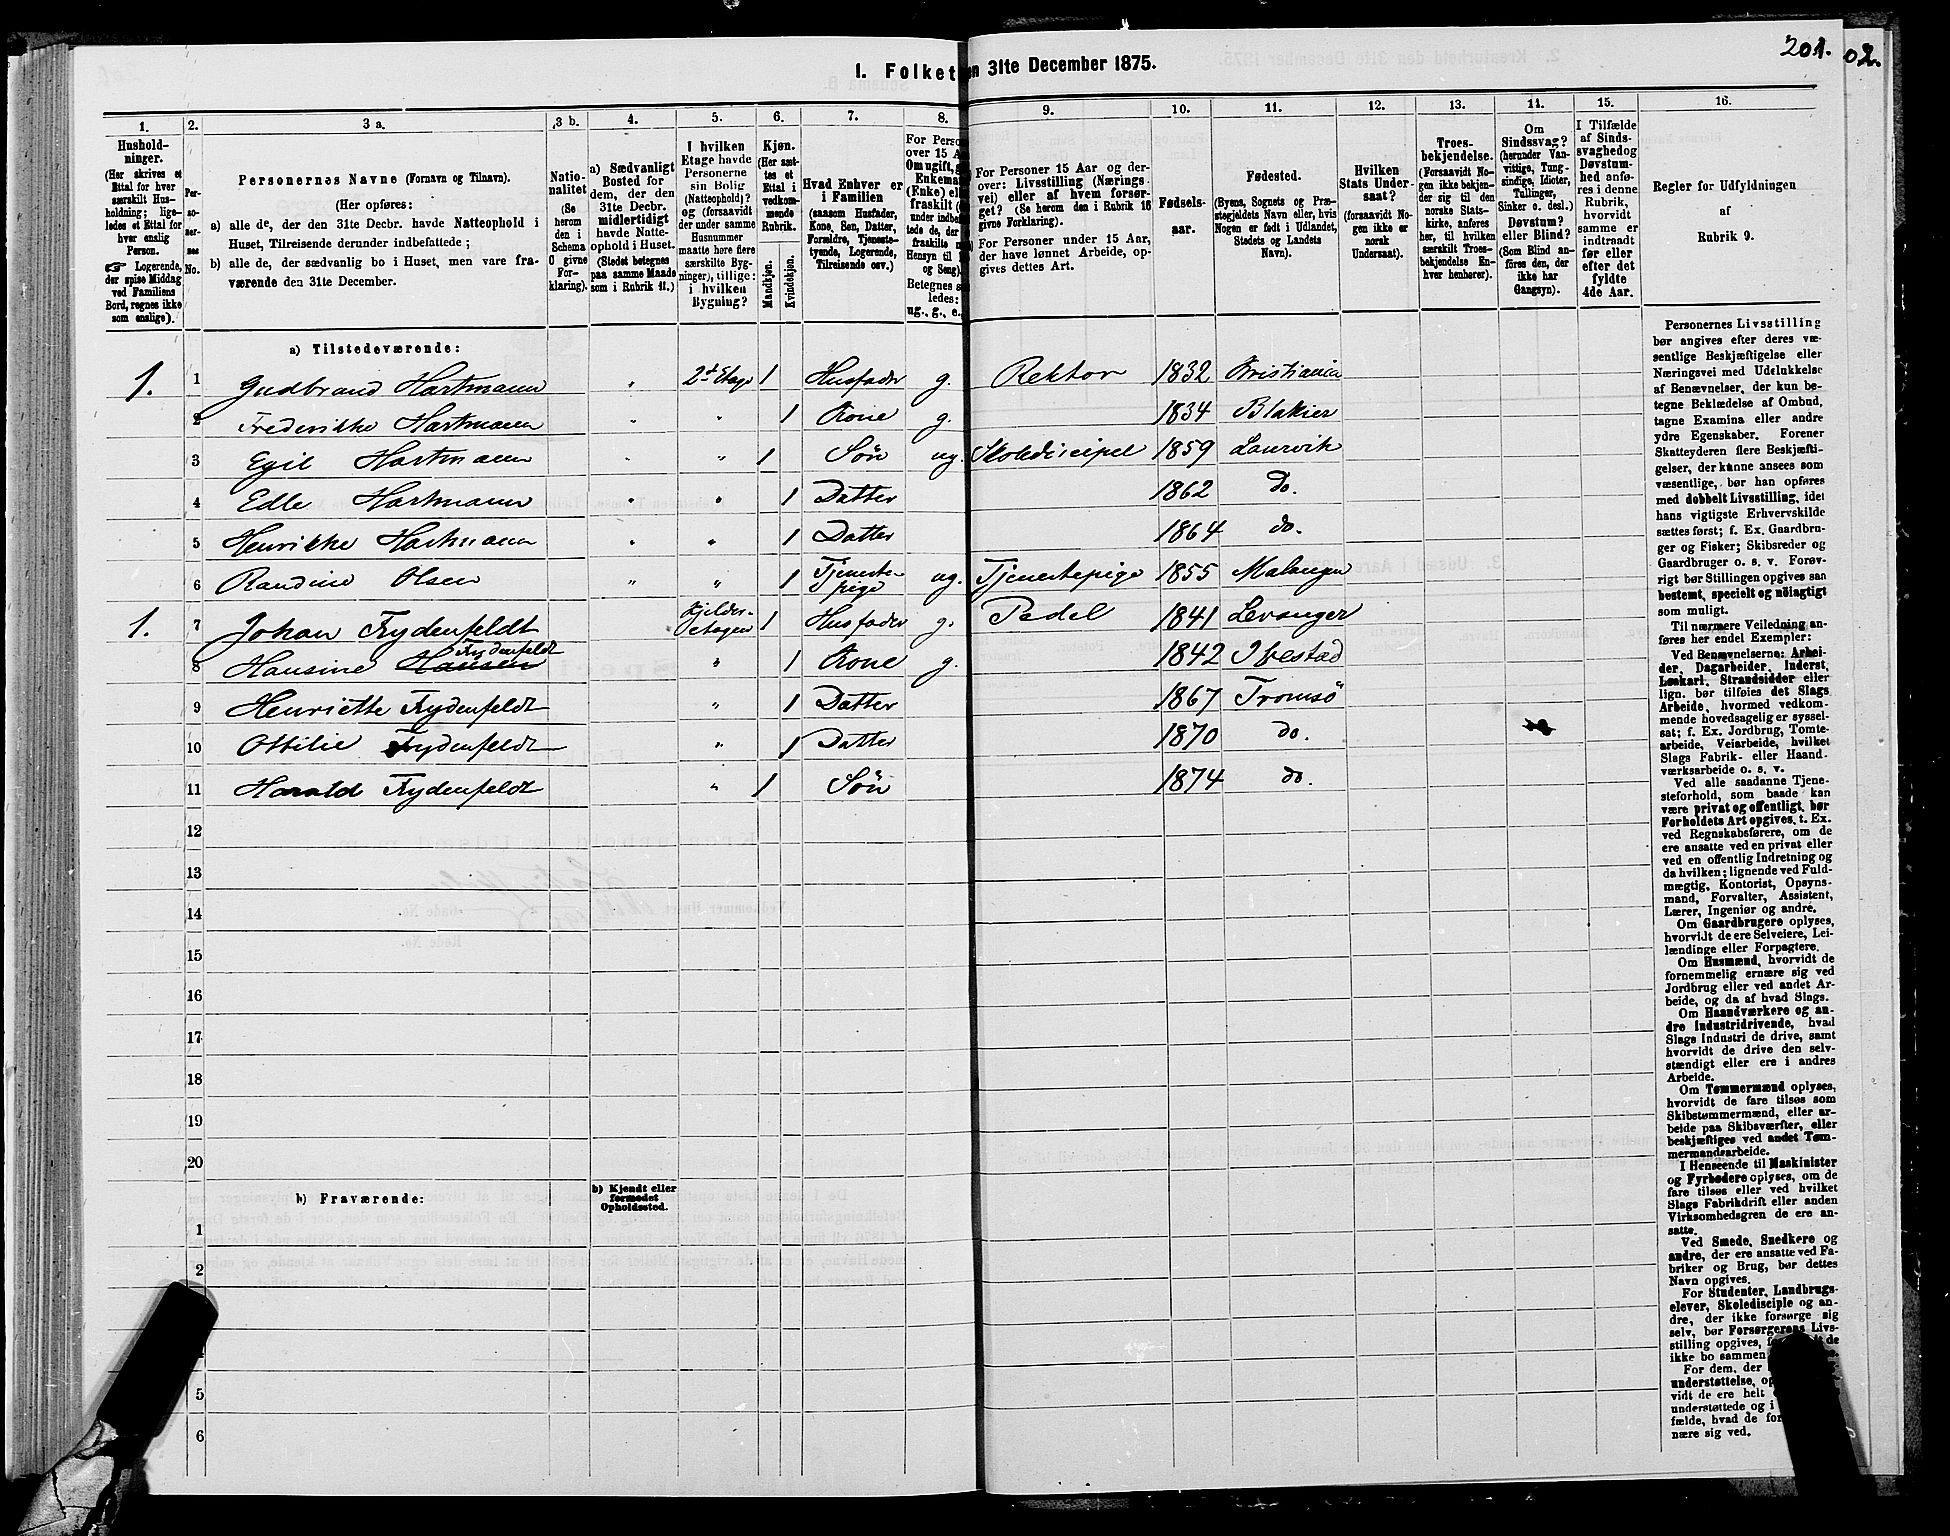 201. 02.
I. Folket en 31te December 1875.
1. 2. 3 a. 3 b. 4. 5. 6. 7. 8. 9. 10. 11. 12. 13. 14. 15. 16.
Hushold-
ninger.
(Her skrives et
Ettal for hver
særskilt Hus-
holdning; lige-
ledes et Ettal for
hver enslig
Person.
☞ Logerende,
der spise Middag
ved Familiens
Bord, regnes ikke
som enslige).
Per-
so-
ner-
nes
No.
Personernes Navne (Fornavn og Tilnavn).
(Her opføres:
a) alle de, der den 31te Decbr. havde Natteophold i
Huset, Tilreisende derunder indbefattede;
b) alle de, der sædvanlig bo i Huset, men vare fra-
værende den 31te December.
Natio-
nalitet
(Se
herom
den i
Schema
C givne
For-
klaring).
a) Sædvanligt
Bosted for
dem, der den
31te Decbr.
midlertidigt
havde Natte-
ophold i Huset.
(Stedet betegnes
paa samme Maade
som i Rubrik 11.)
I hvilken
Etage havde
Personerne
sin Bolig
(Natteophold)?
og (forsaavidt
der under samme
Husnummer
maatte høre flere
særskilte Byg-
ninger), tillige:
i hvilken
Bygning?
Kjøn.
(Her sæt-
tes et
Ettal i
vedkom-
mende
Rubrik.
Mandkjøn.
Kvindekjøn.
Hvad Enhver er
i Familien
(saasom Husfader,
Kone, Søn, Datter,
Forældre, Tjeneste-
tyende, Logerende,
Tilreisende osv.)
For Person
over 15 A
Om ugift, g
Enkema
(Enke) ell
fraskilt (
under indbe
tede de, der
fraskilte
Hensyn til
og Seng).
Betegnes s
ledes:
ug., g., e.,
For Personer 15 Aar og der-
over: Livsstilling (Nærings-
vei) eller af hvem forsør-
get? (Se herom den i Rubrik 16
givne Forklaring).
For Personer under 15 Aar,
der have lønnet Arbeide, op-
gives dettes Art.
Fødsels-
aar.
Fødested.
(Byens, Sognets og Præ-
stegjeldets Navn eller, hvis
Nogen er født i Udlandet,
Stedets og Landets
Navn).
Hvilken
Stats Under-
saat?
(forsaavidt No-
gen ikke er
norsk
Undersaat).
Troes-
bekjendelse.
(Forsaavidt No-
gen ikke bekjen-
der sig til den
norske Stats-
kirke, anføres
her, til hvilken
særskilt Troes-
bekjendelse En-
hver henhører).
Om
Sindssvag?
(herunder Van-
vittige, Tung-
sindige, Idioter,
Tullinger,
Sinker o. desl.)
Døvstum?
eller Blind?
(Som Blind an-
føres den, der
ikke har
Gangsyn).
I Tilfælde
af Sinds-
svaghed og
Døvstum-
hed anfø-
res i denne
Rubrik,
hvorvidt
samme er
indtraadt
før eller
efter det
fyldte
4de Aar.
Regler for Udfyldningen
af
Rubrik 9.
a) Tilstedeværende:
1. 1 Gudbrand Hartmann „ 2d Etage 1 Husfader g. Rektor 1832 Kristiania
2 Frederikke Hartmann „ „ 1 Kone g. 1834 Blakier
3 Egil Hartmann „ „ 1 Søn ug. Skolediscipel 1859 Laurvik
4 Edle Hartmann „ „ 1 Datter 1862 do.
5 Henrikke Hartmann „ „ 1 Datter 1864 do.
6 Randine Olsen „ „ 1 Tjeneste-
pige ug. Tjenestepige 1855 Malangen
1. 7 Johan Frydenfeldt Kjelder-
etagen 1 Husfader g. Pedel 1841 Levanger
8 Hansine Hansen Frydenfeldt „ 1 Kone g. 1842 Ibestad
9 Henriette Frydenfeldt „ 1 Datter 1867 Tromsö
10 Ottilie Frydenfeldt „ 1 Datter 1870 do.
11 Harald Frydenfeldt „ 1 Søn 1874 do.
12
13
14
15
16
17
18
19
20
b) Fraværende:
b) Kjendt eller
formodet
Opholdssted.
1
2
4
5
6
Personernes Livsstilling
bør angives efter deres væ-
sentlige Beskjæftigelse eller
Næringsvei med Udelukkelse
af Benævnelser, der kun be-
tegne Beklædelse af Ombud,
tagne Examina eller andre
ydre Egenskaber. Forener
Skatteyderen flere Beskjæfti-
gelser, der kunne ansees som
væsentlige, bør han opføres
med dobbelt Livsstilling, idet
hans vigtigste Erhvervskilde
sættes først; f. Ex. Gaardbru-
ger og Fisker; Skibsreder og
Gaardbruger o. s. v. Forøv-
rigt bør Stillingen opgives saa
bestemt, specielt og nöiagtigt
som muligt.
Til nærmere Veiledning an-
føres her endel Exempler:
Ved Benævnelserne: Arbei-
der, Dagarbeider, Inderst,
Løskarl, Strandsidder eller
lign. bør tilføies det Slags
Arbeide, hvormed vedkom-
mende hovedsagelig er syssel-
sat; f. Ex. Jordbrug, Tomte-
arbeide, Veiarbeide, hvilket
Slags Fabrik- eller Haand-
værksarbeide o. s. v.
Ved alle saadanne Tjene-
steforhold, som baade kan
være privat og offentligt, bør
Forholdets Art opgives, t. Ex.
ved Regnskabsførere, om de
ere ansatte ved en privat eller
ved en offentlig Indretning og
da hvilken; lignende ved Fuld-
mægtig, Kontorist, Opsyns-
mand, Forvalter, Assistent,
Lærer, Ingeniør og andre.
Om Gaardbrugere oplyses,
hvorvidt de ere Selveiere, Lei-
lændinge eller Forpagtere.
Om Husmænd, hvorvidt de
fornemmelig ernære sig ved
Jordbrug eller ved andet Ar-
beide, og da af hvad Slags.
Om Haandværkere og an-
dre Industridrivende, hvad
Slags Industri de drive, samt
hvorvidt de drive den selv-
stændigt eller ere i andres
Arbeide.
Om Tømmermænd oplyses,
hvorvidt de fare tilsøs som
Skibstømmermænd, eller ar-
beide paa Skibsværfter, eller
beskjæftiges ved andet Tøm-
mermandsarbeide.
I Henseende til Maskinister
og Fyrbødere oplyses, om de
fare tilsøs eller ved hvilket
Slags Fabrikdrift eller anden
Virksomhedsgren de ere an-
satte.
Ved Smede, Snedkere og
andre, der ere ansatte ved Fa-
briker og Brug, bør dettes
Navn opgives.
For Studenter, Landbrugs-
elever, Skoledisciple og an-
dre, der ikke forsørge sig
selv, bør Forsørgerens Livs-
stilling opgives, de
ikke bo sammen
For dem, der
understøttelse, op
vidt de ere helt
understøttede og i
fælde, hvad de for
nære sig ved.